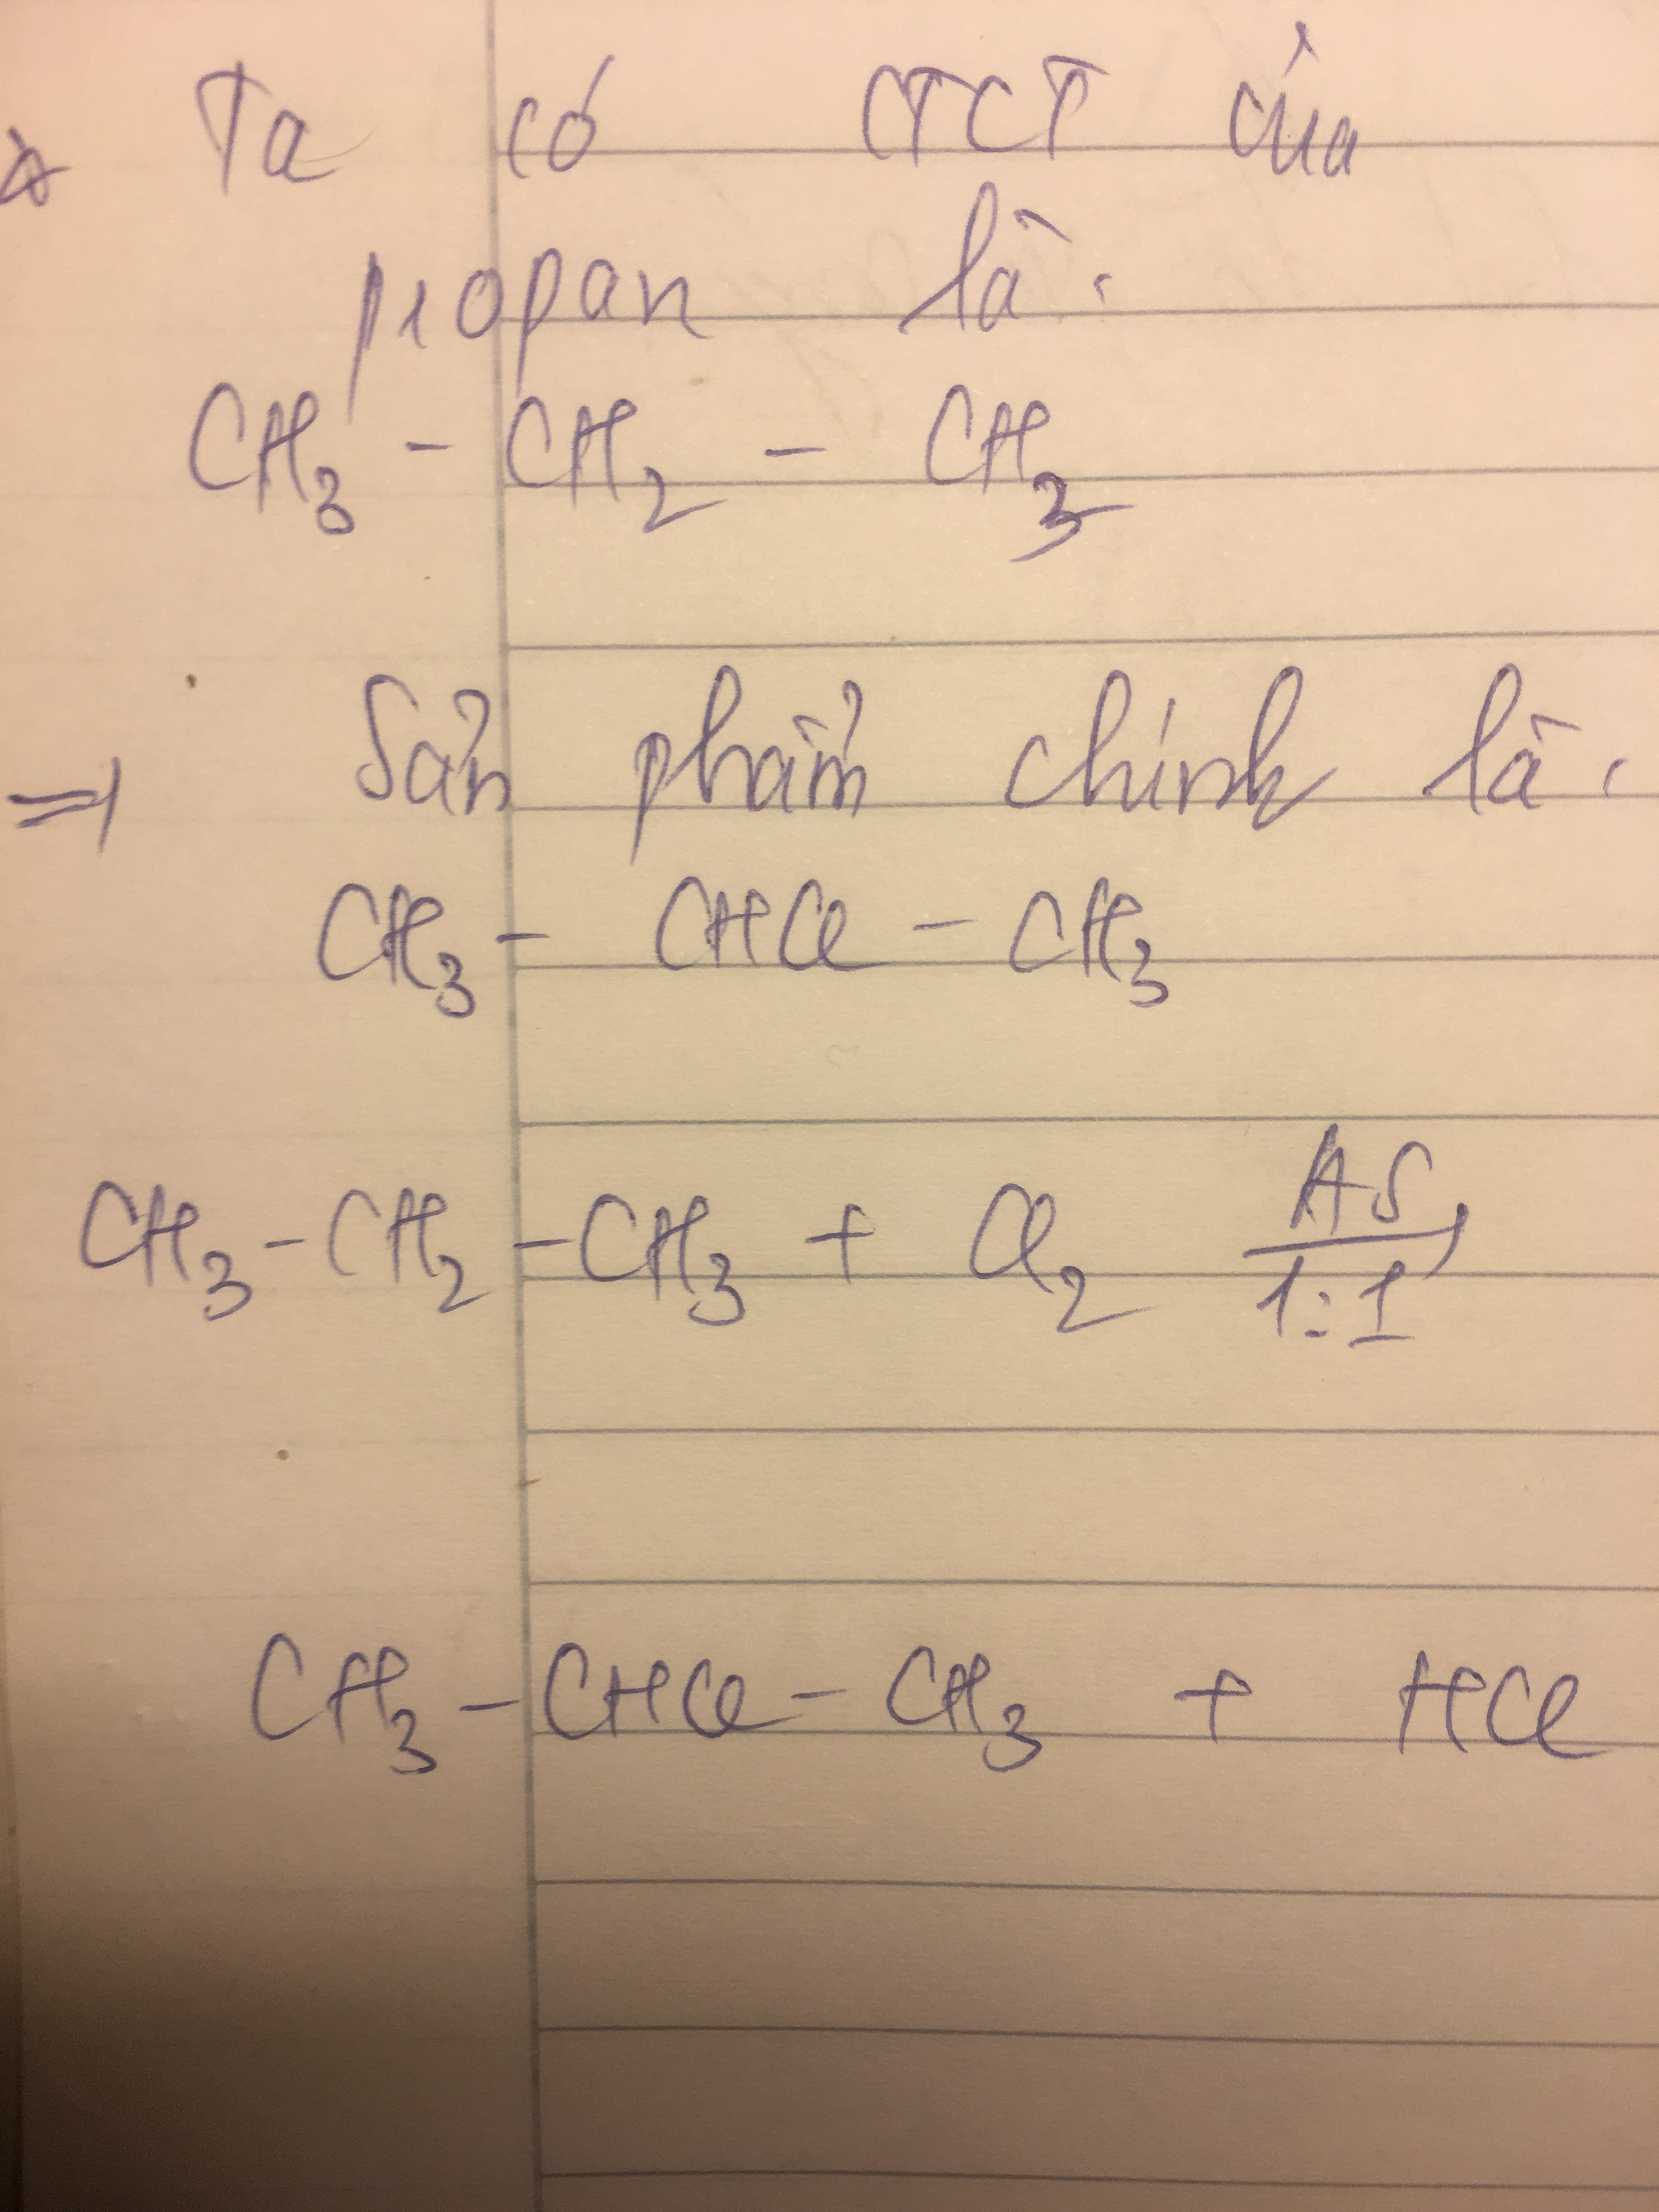 Ta có CTCT của
propan là:
CH₃ - CH₂ - CH₃
=> Sản phẩm chính là:
CH₃ - CHCl - CH₃
CH₃-CH₂-CH₃ + Cl₂ AS/1:1→
CH₃-CHCl-CH₃ + HCl